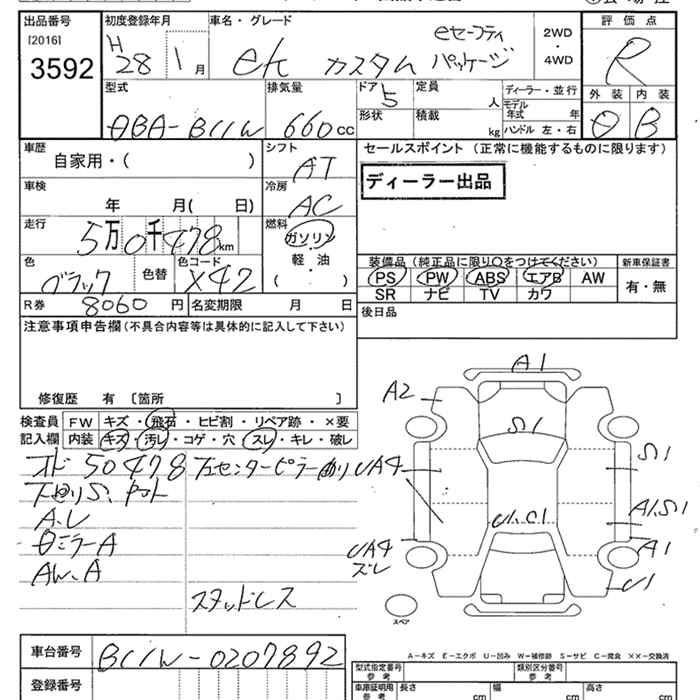 出品番号 初度登録年月 車名・グレード 評価点
[2016] H eセーフティ 2WD
3592 28 1月 ek カスタム パッケージ ・4WD R
型式 排気量 ドア 5 定員 人 ディーラー・並行 外装 内装
DBA-B11W 660cc 形状 積載 kg モデル年式 年 B
ハンドル 左・右
車歴 シフト セールスポイント(正常に機能するものに限ります)
自家用・( ) AT
車検 冷房 ディーラー出品
年 月( 日) AC
走行 5万0千478km 燃料 ガソリン・軽・油 ( )
装備品(純正品に限り○をつけてください) 新車保証書
色 ブラック 色替 色コード X42 PS PW ABS エアB AW 有・無
SR ナビ TV カワ
R券 8060円 名変期限 月 日
後日品
注意事項申告欄(不具合内容等は具体的に記入して下さい)
修復歴 有 〔箇所 〕
検査員 FW キズ・飛石・ヒビ割・リペア跡・×要
記入欄 内装 キズ・汚レ・コゲ・穴・スレ・キレ・破レ
50478
A.L
ミラーA
AW.A
スタッドレス
A1
A2
S1
UA4
S1
A1.S1
U1.C1
UA4
ズレ
A1
U1
スペア
A-キズ E-エクボ U-凹み W-補修跡 S-サビ C-腐食 ××-交換済
車台番号 B11W-0207892
登録番号
型式指定番号 参考 類別区分番号 参考
車庫証明用 参考 長さ cm 幅 cm 高さ cm